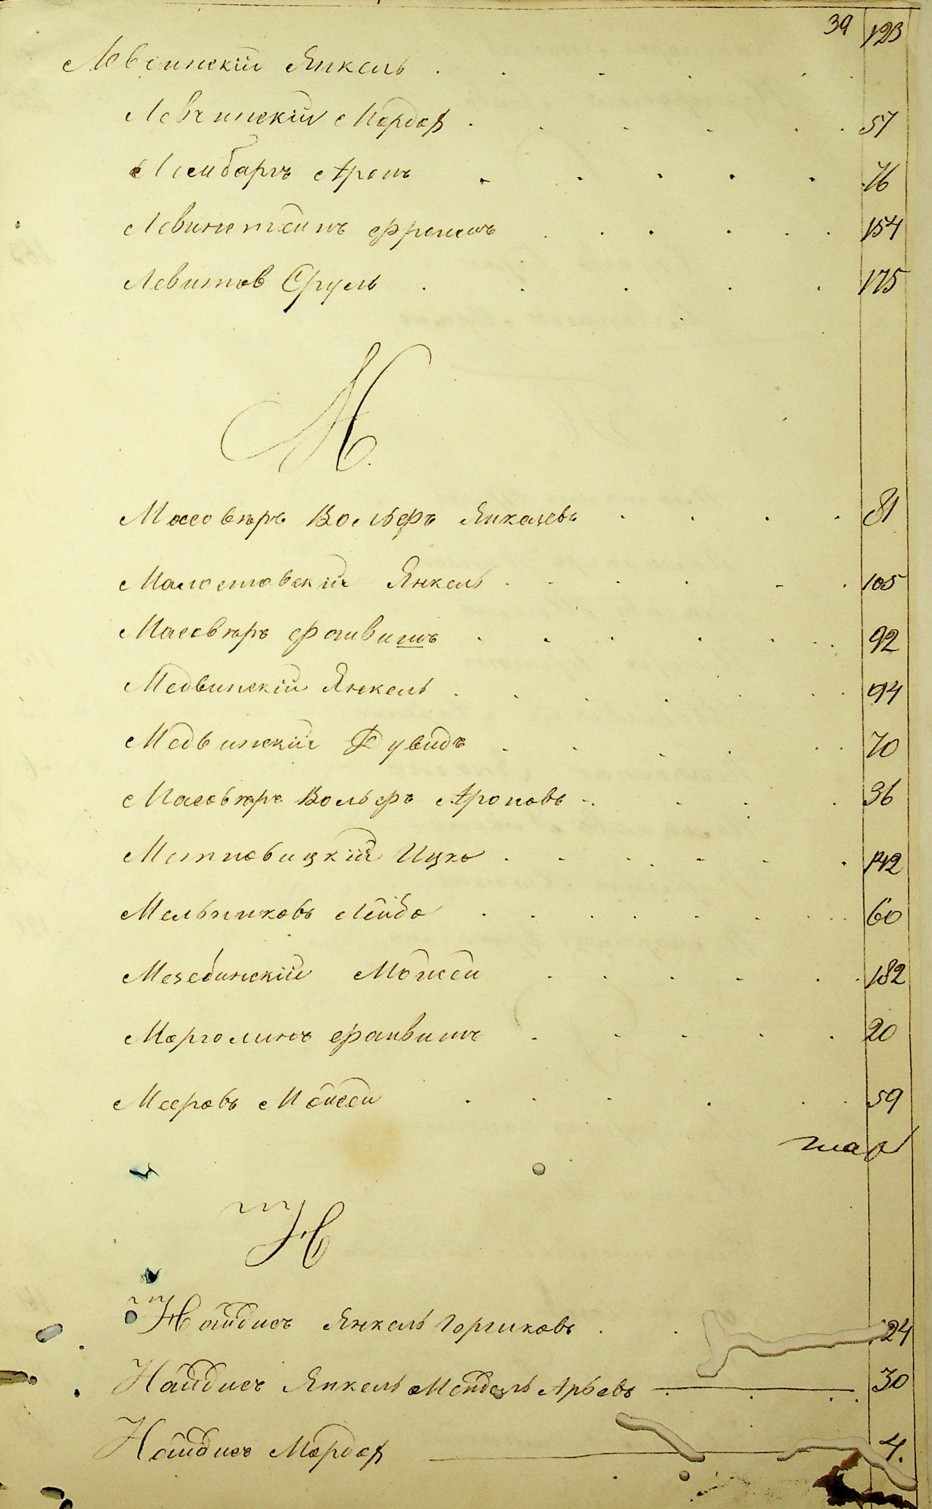 39 123
Левинскій Янкель
Левчинскій Мордох 57
Лембаргъ Аронъ 76
Левинштеинъ Фроимъ 154
Левитов Сруль 175
М.
Масовѣръ Вольфъ Янкелевъ 81
Малостовскій Янкель 105
Масовѣръ Фаивишъ 92
Медвинскій Янкель 94
Медвинскій Дувидъ 70
Масовѣръ Вольфъ Ароновъ 36
Метновицкій Ицко 142
Мельниковъ Лейба 60
Мезебинскій Мойсеи 182
Марголинъ Фаивишъ 20
Мееровъ Мойсеи 59
Н
Найдисъ Янкель Горшковъ 124
Найдисъ Янкель Мендель Арьевъ 30
Найдисъ Мордох 4.